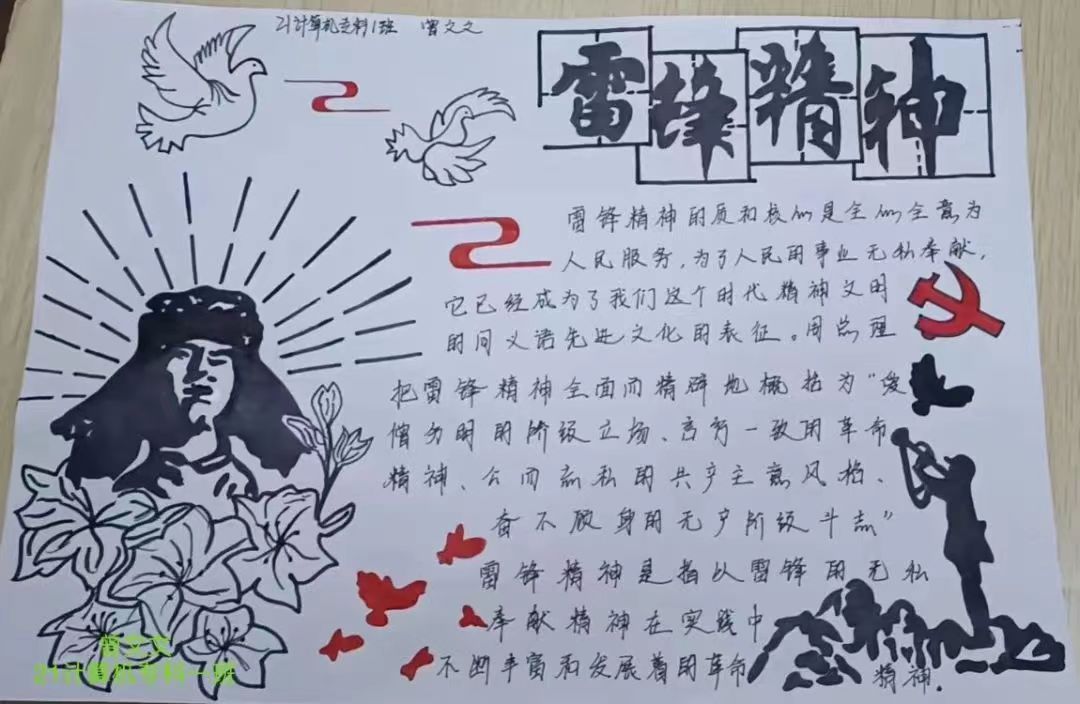 21计算机专科1班 曾文文
雷锋精神
雷锋精神的质和核心是全心全意为
人民服务,为了人民的事业无私奉献,
它已经成为了我们这个时代精神文明
的同义语先进文化的表征。周总理
把雷锋精神全面而精辟地概括为“爱
憎分明的阶级立场、言行一致的革命
精神、公而忘私的共产主义风格、
奋不顾身的无产阶级斗志”
雷锋精神是指以雷锋的无私
奉献精神在实践中
不断丰富和发展着的革命 精神.
曾文文
21计算机专科一班